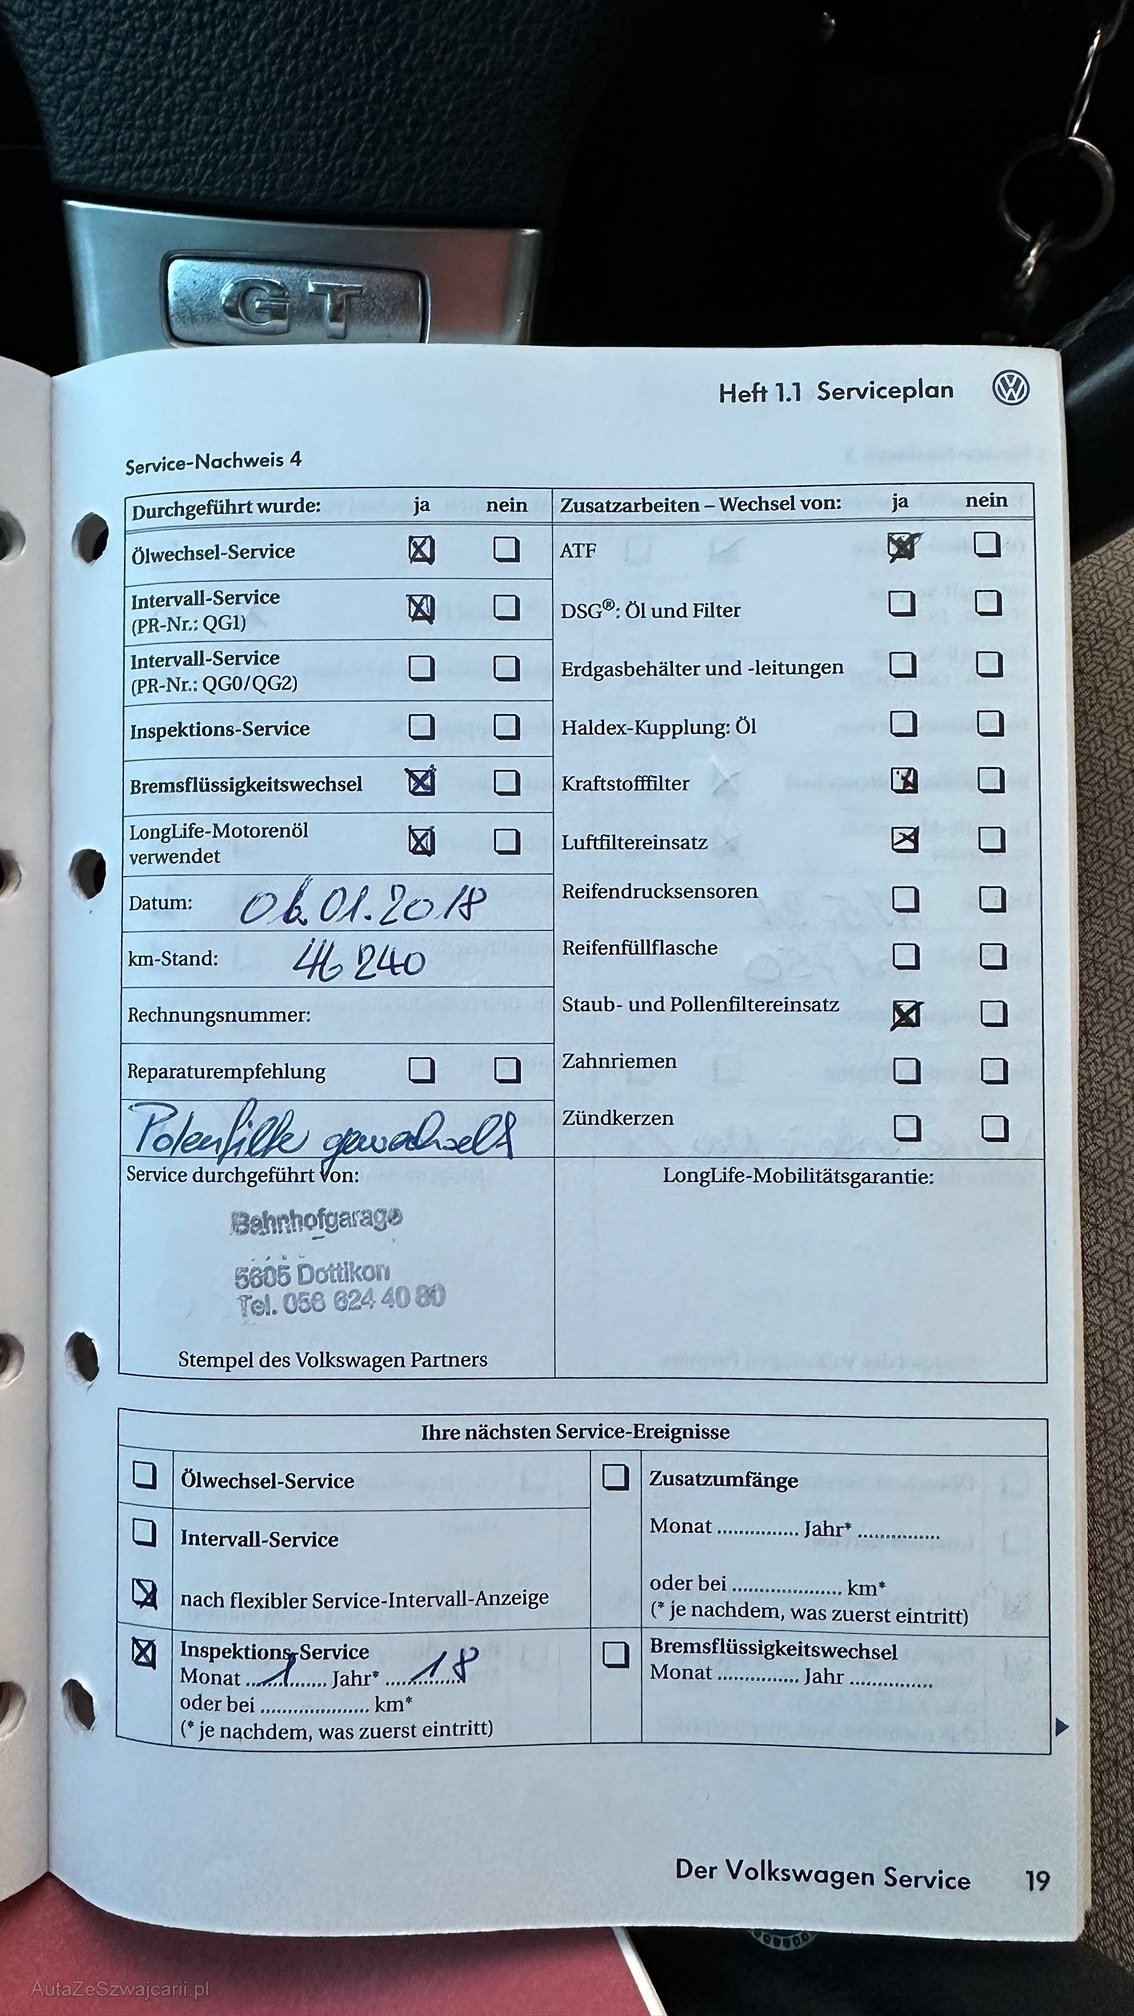 GT
Heft 1.1 Serviceplan
Service-Nachweis 4
Durchgeführt wurde: ja nein
Ölwechsel-Service
Intervall-Service
(PR-Nr.: QG1)
Intervall-Service
(PR-Nr.: QG0/QG2)
Inspektions-Service
Bremsflüssigkeitswechsel
LongLife-Motorenöl
verwendet
Datum: 06.01.2018
km-Stand: 46 240
Rechnungsnummer:
Reparaturempfehlung
Polenfilte gewechselt
Service durchgeführt von:
Bahnhofgarage
5605 Dottikon
Tel. 056 624 40 80
Stempel des Volkswagen Partners
Zusatzarbeiten – Wechsel von: ja nein
ATF
DSG®: Öl und Filter
Erdgasbehälter und -leitungen
Haldex-Kupplung: Öl
Kraftstofffilter
Luftfiltereinsatz
Reifendrucksensoren
Reifenfüllflasche
Staub- und Pollenfiltereinsatz
Zahnriemen
Zündkerzen
LongLife-Mobilitätsgarantie:
Ihre nächsten Service-Ereignisse
Ölwechsel-Service
Intervall-Service
nach flexibler Service-Intervall-Anzeige
Inspektions-Service
Monat 1 Jahr* 18
oder bei .................... km*
(* je nachdem, was zuerst eintritt)
Zusatzumfänge
Monat ............... Jahr* ...............
oder bei .................... km*
(* je nachdem, was zuerst eintritt)
Bremsflüssigkeitswechsel
Monat ............... Jahr ...............
Der Volkswagen Service 19
AutaZeSzwajcarii.pl